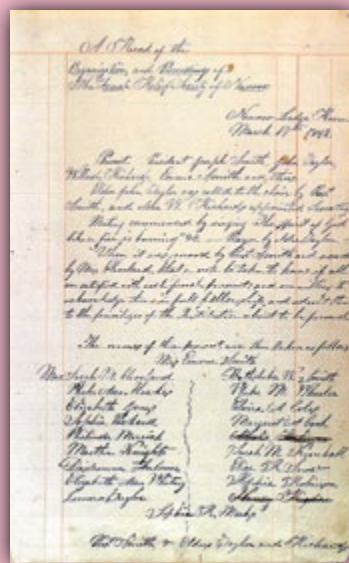 A Record of the
Organization, and Proceedings of
The Female Relief Society of Nauvoo
Nauvoo Lodge Room
March 17th 1842.
Present. President Joseph Smith, John Taylor,
Willard Richards, Emma Smith and others
Elder John Taylor was call'd to the chair by Prest.
Smith, and elder W. Richards appointed Secretary
Meeting commenced by singing "The spirit of God
like a fire is burning" &c. Prayer by elder Taylor
When it was moved by Prest. Smith and seconded
by Mrs. Cleveland, that a vote be taken to know if all
are satisfied with each female present; and are willing to
acknowledge them in full fellowship, and admit them
to the privileges of the Institution about to be formed.
The names of those present were then taken as follows
Mrs. Emma Smith
Mrs. Sarah M. Cleveland Bathsheba W. Smith
Phebe Ann Hawkes Phebe M. Wheeler
Elizabeth Jones Elvira A. Coles
Sophia Packard Margaret A. Cook
Philinda Merrick
Martha Knights Sarah M. Kimball
Desdemona Fulmer Eliza R. Snow
Elizabeth Ann Whitney Sophia Robinson
Leonora Taylor
Sophia R. Marks
Prest. Smith, & Elders Taylor & Richards